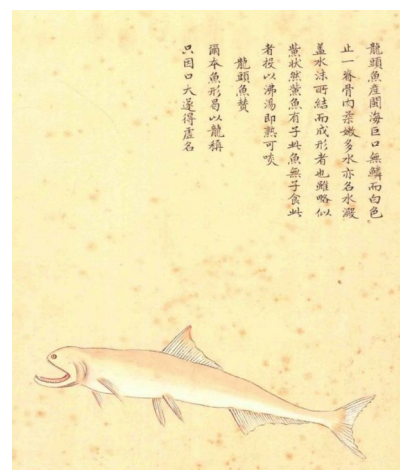 龍頭魚產閩海巨口無鱗而白色
止一脊骨肉柔嫩多水亦名水澱
盖水沫所結而成形者也雖略似
鮆狀然鮆魚有子此魚無子食此
者投以沸湯即熟可啖
龍頭魚贊
爾本魚形曷以龍稱
只因口大遂得虛名